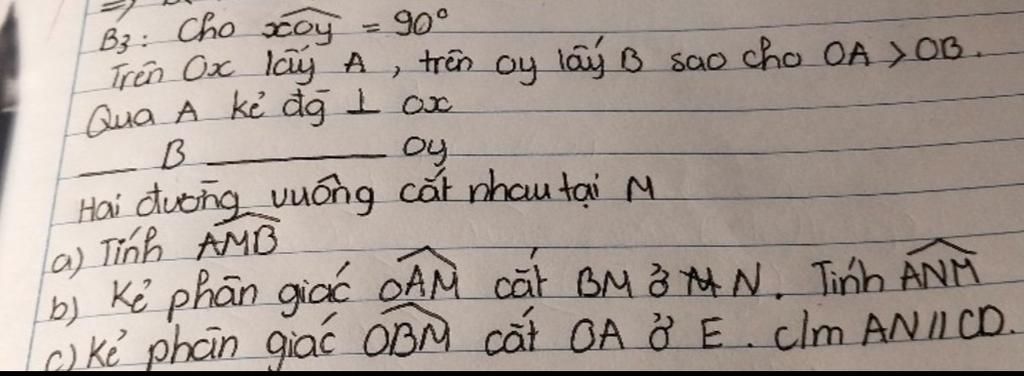 B3: Cho xOy = 90°
Trên Ox lấy A, trên Oy lấy B sao cho OA > OB.
Qua A kẻ đg ⊥ Ox
___ B ________ Oy
Hai đường vuông cắt nhau tại M
a) Tính AMB
b) Kẻ phân giác OAM cắt BM ở N. Tính ANM
c) Kẻ phân giác OBM cắt OA ở E. c/m AN//CD.